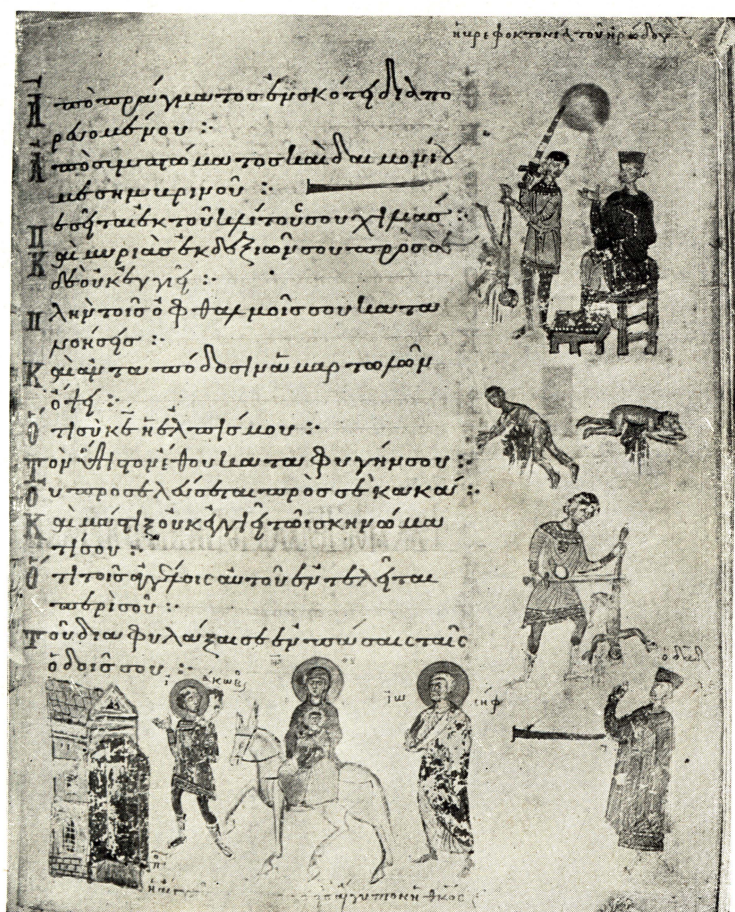 ἡ βρεφοκτονία τοῦ ἡρώδου
Ἀπὸ πράγματος ἐν σκότει διαπο
ρευομένου :·
Ἀπὸ συμπτώματος καὶ δαιμονίου
μεσημβρινοῦ :·
Πεσεῖται ἐκ τοῦ κλίτους σου χιλιάς :·
Καὶ μυριὰς ἐκ δεξιῶν σου πρὸς σὲ
δὲ οὐκ ἐγγιεῖ :·
Πλὴν τοῖς ὀφθαλμοῖς σου κατα
νοήσεις :·
Καὶ ἀνταπόδοσιν ἁμαρτωλῶν
ὄψει :·
Ὅτι σὺ κε ἡ ἐλπίς μου :·
Τὸν ὕψιστον ἔθου καταφυγήν σου :·
Οὐ προσελεύσεται πρὸς σὲ κακά :·
Καὶ μάστιξ οὐκ ἐγγιεῖ τῷ σκηνώμα
τί σου :·
Ὅτι τοῖς ἀγγέλοις αὐτοῦ ἐντελεῖται
περὶ σοῦ :·
Τοῦ διαφυλάξαι σε ἐν πάσαις ταῖς
ὁδοῖς σου :·
ἰάκωβος
ἰωσηφ